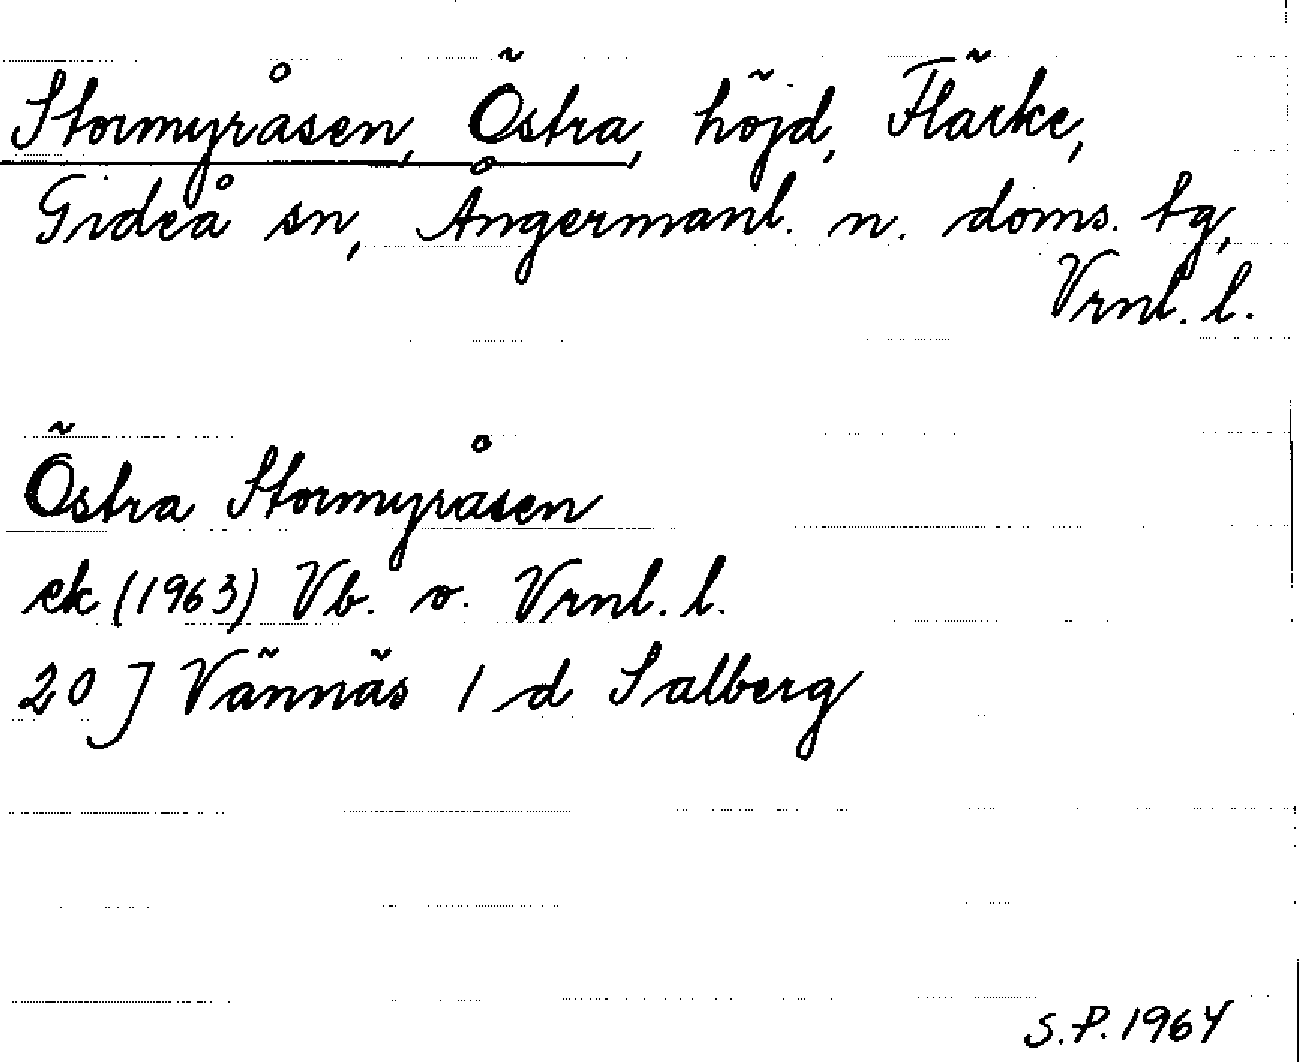 Stormyråsen, Östra, höjd, Flärke,
Gideå sn, Ångermanl. n. doms. tg,
Vrnl. l.
Östra Stormyråsen
ek (1963) Vb. o. Vrnl. l.
20 J Vännäs 1 d Salberg
S.P. 1964